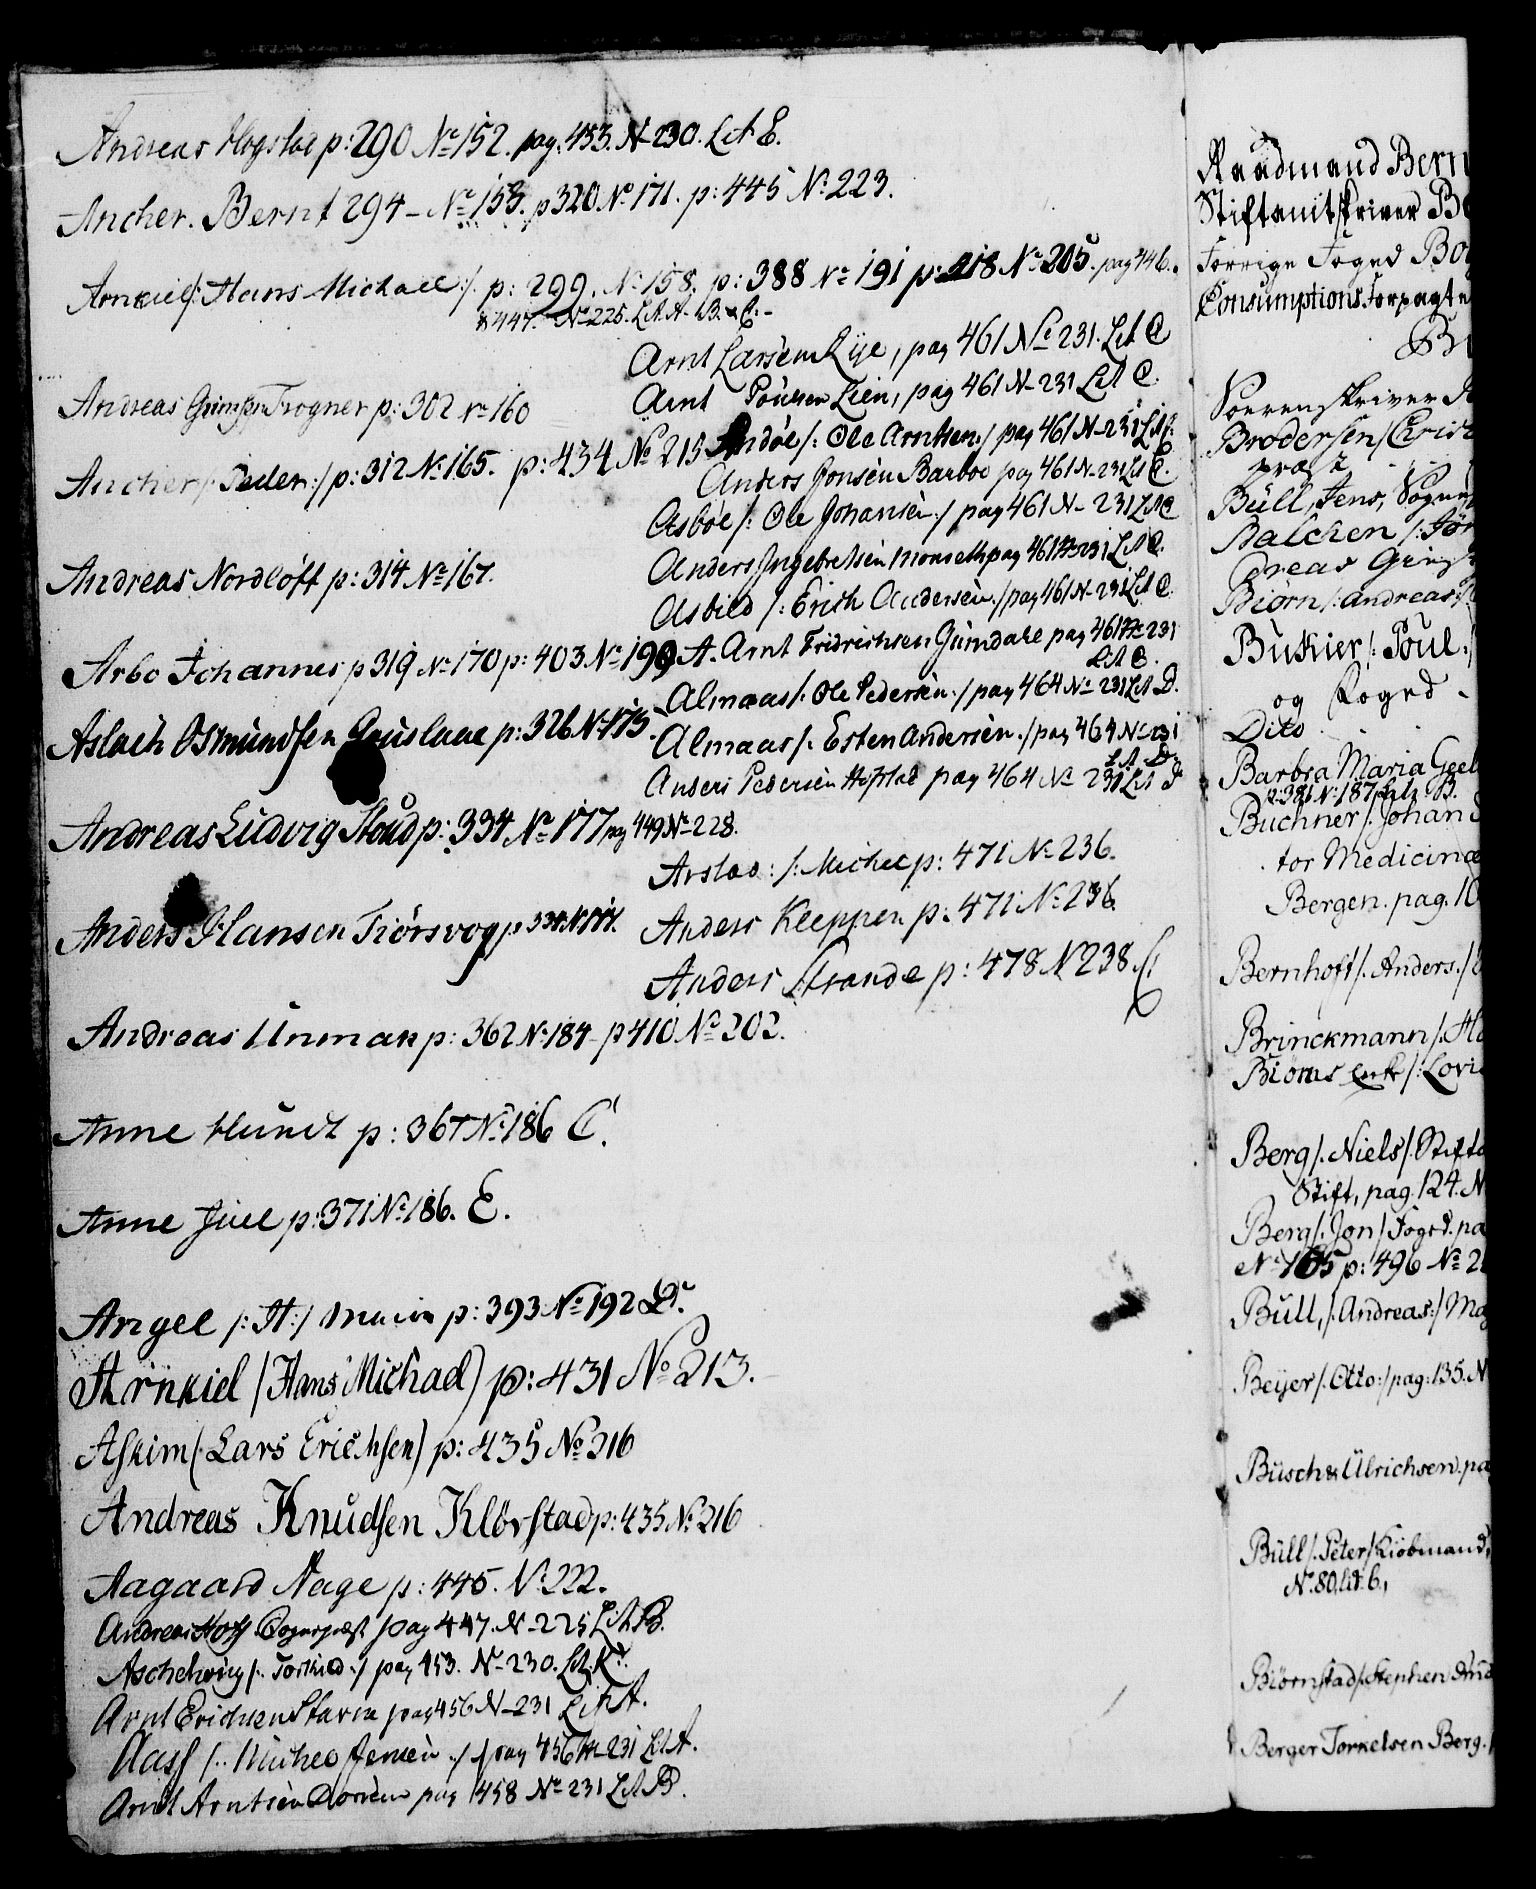 Andreas Hogstad p: 290 No 152. pag. 453. N 230. Lit E.
Ancher. Bernt 294 - No 153. p 320 No 171. p: 445 No 223.
Arnkiel /: Hans Michael :/ p: 299. No 158. p: 388 No 191 p: 218 No 205. pag 446.
& 447. No 225. Lit A. B. & C. -
Andreas Trogner p: 302 No 160
Ancher /: Peder :/ p: 312 No 165. p: 434 No 215
Andreas Nordlöff p: 314 No 167.
Arbo Johannes p 319 No 170 p: 403. No 199
Aslach Osmundsen p: 326 No 175.
Andreas Ludvig Stoud p: 334 No 177 pag 449 No 228.
Anders Hansen Tiörsvog p 334 No 177.
Andreas Unmak p: 362 No 184 - p 410 No 202.
Anne Hundt p: 367 No 186 C.
Anne Juel p: 371 No 186. E.
Angel /: H :/ Major p: 393 No 192 Dr.
Arnkiel (Hans Michael) p: 431 No 213.
Askim (Lars Erichsen) p: 435 No 216
Andreas Knudsen Klörstad p: 435 No 216
Aagaard Aage p: 445. No 222.
Andreas Hoff Sognepræst pag 447. N - 225 Lit B.
Aschehoug /: Torkild :/ pag 453. No - 230. Lit K.
Arnt Erichsen Stavne pag 456 N - 231 Lit A.
Aass /: Michel Jensen :/ pag 456 N - 231 Lit A.
Arnt Arntsen pag 458 No 231 Lit B.
Arnt Larsen Rye, pag 461 No 231. Lit C
Arnt Poulsen Lien, pag 461 N - 231 Lit C.
Andöe /: Ole Arntsen :/ pag 461 N - 231 Lit C.
Anders Jonsen Barboe pag 461 N - 231 Lit C.
Asböe /: Ole Johansen :/ pag 461 N - 231 Lit C
Anders Ingebretsen Monseth pag 461 No 231 Lit C.
Asbild /: Erich Andersen :/ pag 461 N - 231 Lit C.
A. Arnt Fridrichsen Gürndahl pag 461 No 231
Lit C.
Almaas /: Ole Pedersen :/ pag 464 No 231 Lit D.
Almaas /: Esten Andersen :/ pag 464 No 231
Lit D.
Anders Pedersen Hofstad pag 464 No 231 Lit D
Arstad : /: Michel p: 471 No 236.
Anders Kleppen p: 471 No 236.
Anders Strande p: 478 No 238. C:
Raadmand Bern
Stiftamtskriver B
Forrige Foged Bo
Consumptions Forpagte
B
Sorenskriver
Brodersen / Christ
præst
Büll, Jens, Sogne
Balchen /: Jör
dreas
Biörn /: Andreas
Bukier /: Poul :/
og Foged -
Dito
Barbra Maria Geel
p. 381 No 187 Litr B.
Buchner /: Johan
tor Medicinæ
Bergen. pag. 10
Bernhoft /: Anders. /
Brinckmann /:
Biörns Enke /: Lovi
Berg /: Niels /: Stifts
Stift, pag. 124. N
Berg /: Jon / Foged. pa
No 165 p: 496 No 2
Büll, /: Andreas: / Mag
Beyer /: Otto: / pag: 135. N
Büsch & Ulrichsen. pa
Büll /: Peter / Kiöbmand,
No. 80. lit. b,
Biörnstad /: Stephen
Berger Torkelsen Berg.